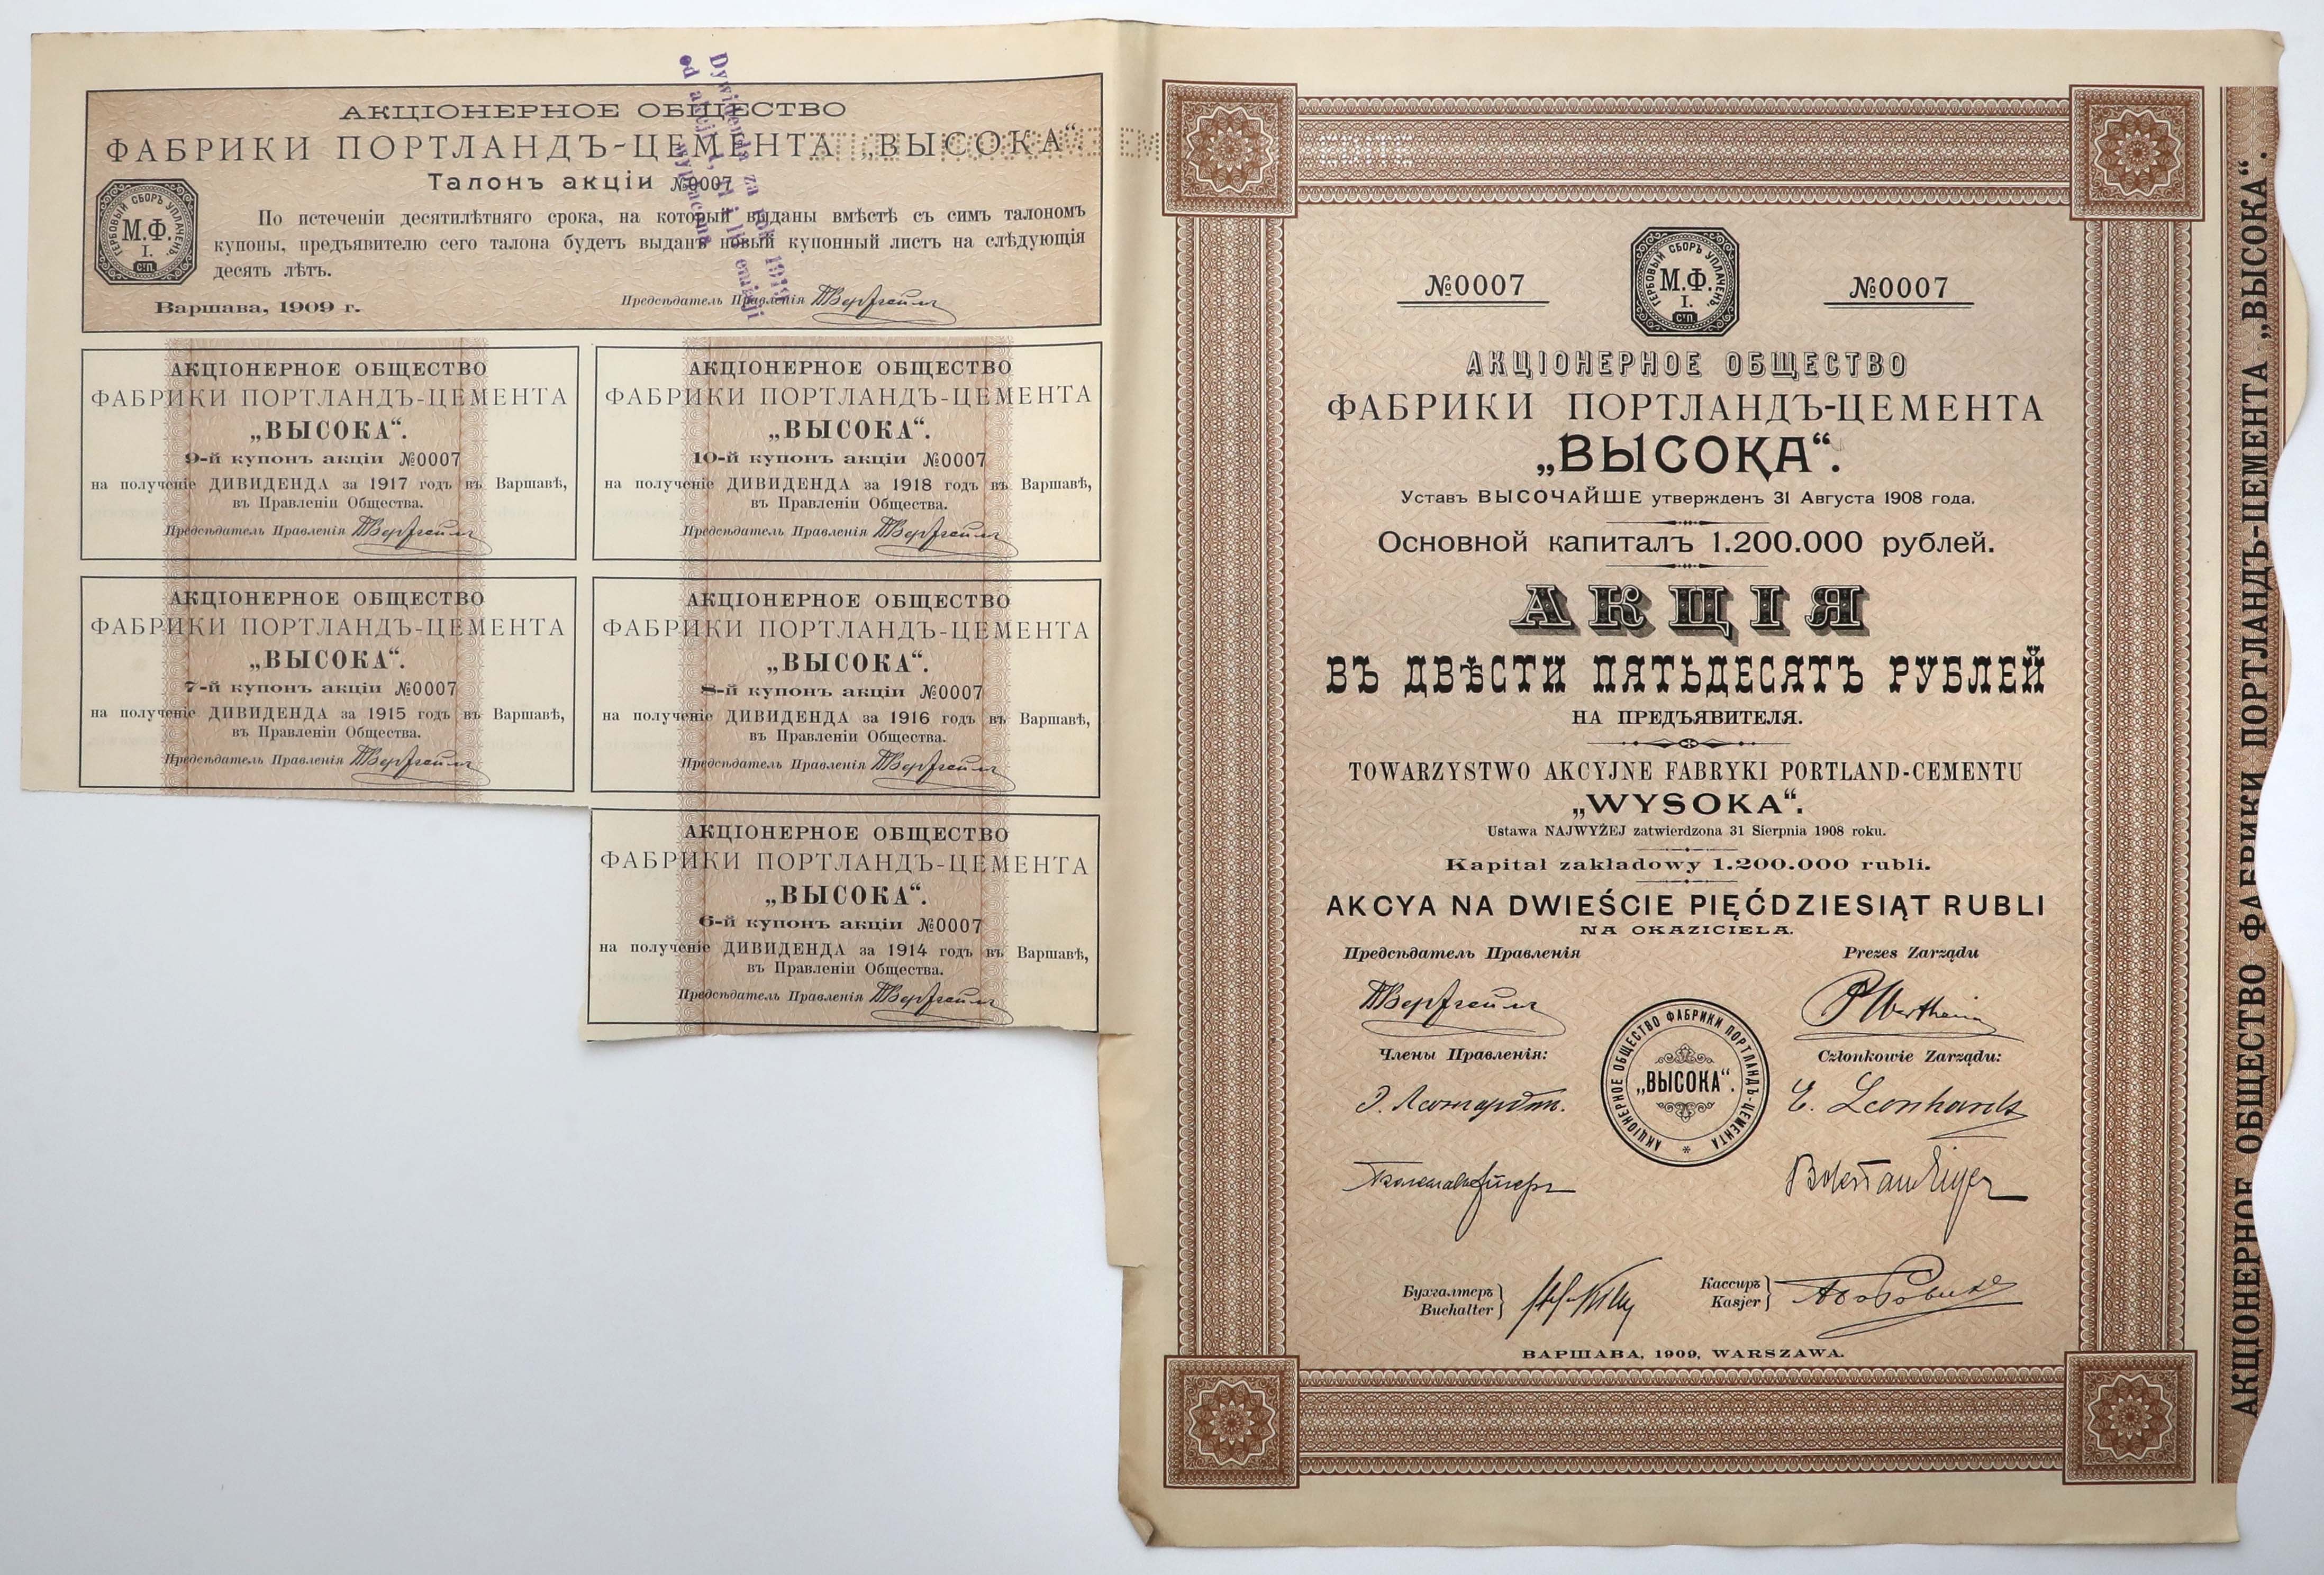 АКЦІОНЕРНОЕ ОБЩЕСТВО
ФАБРИКИ ПОРТЛАНДЪ-ЦЕМЕНТА „ВЫСОКА“.
Талонъ акціи №0007
ГЕРБОВЫЙ СБОРЪ УПЛАЧЕНЪ.
М.Ф.
I.
СП.
По истеченіи десятилѣтняго срока, на который выданы вмѣстѣ съ симъ талономъ
купоны, предъявителю сего талона будетъ выданъ новый купонный листъ на слѣдующія
десять лѣтъ.
Варшава, 1909 г.
Предсѣдатель Правленія
Dywidenda za rok 1919
od akcji I, II i III emisji
wypłacona
АКЦІОНЕРНОЕ ОБЩЕСТВО
ФАБРИКИ ПОРТЛАНДЪ-ЦЕМЕНТА
„ВЫСОКА“.
9-й купонъ акціи №0007
на полученіе ДИВИДЕНДА за 1917 годъ въ Варшавѣ,
въ Правленіи Общества.
Предсѣдатель Правленія
АКЦІОНЕРНОЕ ОБЩЕСТВО
ФАБРИКИ ПОРТЛАНДЪ-ЦЕМЕНТА
„ВЫСОКА“.
10-й купонъ акціи №0007
на полученіе ДИВИДЕНДА за 1918 годъ въ Варшавѣ,
въ Правленіи Общества.
Предсѣдатель Правленія
АКЦІОНЕРНОЕ ОБЩЕСТВО
ФАБРИКИ ПОРТЛАНДЪ-ЦЕМЕНТА
„ВЫСОКА“.
7-й купонъ акціи №0007
на полученіе ДИВИДЕНДА за 1915 годъ въ Варшавѣ,
въ Правленіи Общества.
Предсѣдатель Правленія
АКЦІОНЕРНОЕ ОБЩЕСТВО
ФАБРИКИ ПОРТЛАНДЪ-ЦЕМЕНТА
„ВЫСОКА“.
8-й купонъ акціи №0007
на полученіе ДИВИДЕНДА за 1916 годъ въ Варшавѣ,
въ Правленіи Общества.
Предсѣдатель Правленія
АКЦІОНЕРНОЕ ОБЩЕСТВО
ФАБРИКИ ПОРТЛАНДЪ-ЦЕМЕНТА
„ВЫСОКА“.
6-й купонъ акціи №0007
на полученіе ДИВИДЕНДА за 1914 годъ въ Варшавѣ,
въ Правленіи Общества.
Предсѣдатель Правленія
№0007
ГЕРБОВЫЙ СБОРЪ УПЛАЧЕНЪ.
М.Ф.
I.
СП.
№0007
АКЦІОНЕРНОЕ ОБЩЕСТВО
ФАБРИКИ ПОРТЛАНДЪ-ЦЕМЕНТА
„ВЫСОКА“.
Уставъ ВЫСОЧАЙШЕ утвержденъ 31 Августа 1908 года.
Основной капиталъ 1.200.000 рублей.
АКЦІЯ
ВЪ ДВѢСТИ ПЯТЬДЕСЯТЪ РУБЛЕЙ
НА ПРЕДЪЯВИТЕЛЯ.
TOWARZYSTWO AKCYJNE FABRYKI PORTLAND-CEMENTU
„WYSOKA“.
Ustawa NAJWYŻEJ zatwierdzona 31 Sierpnia 1908 roku.
Kapitał zakładowy 1.200.000 rubli.
AKCYA NA DWIEŚCIE PIĘĆDZIESIĄT RUBLI
NA OKAZICIELA.
Предсѣдатель Правленія
Prezes Zarządu
P Wertheim
Члены Правленія:
Członkowie Zarządu:
Э. Леонардтъ.
E. Leonhardt
АКЦІОНЕРНОЕ ОБЩЕСТВО ФАБРИКИ ПОРТЛАНДЪ-ЦЕМЕНТА
„ВЫСОКА“.
Bolesław Eiger
Бухгалтеръ
Buchalter
Кассиръ
Kasjer
ВАРШАВА, 1909, WARSZAWA.
АКЦІОНЕРНОЕ ОБЩЕСТВО ФАБРИКИ ПОРТЛАНДЪ-ЦЕМЕНТА „ВЫСОКА“.